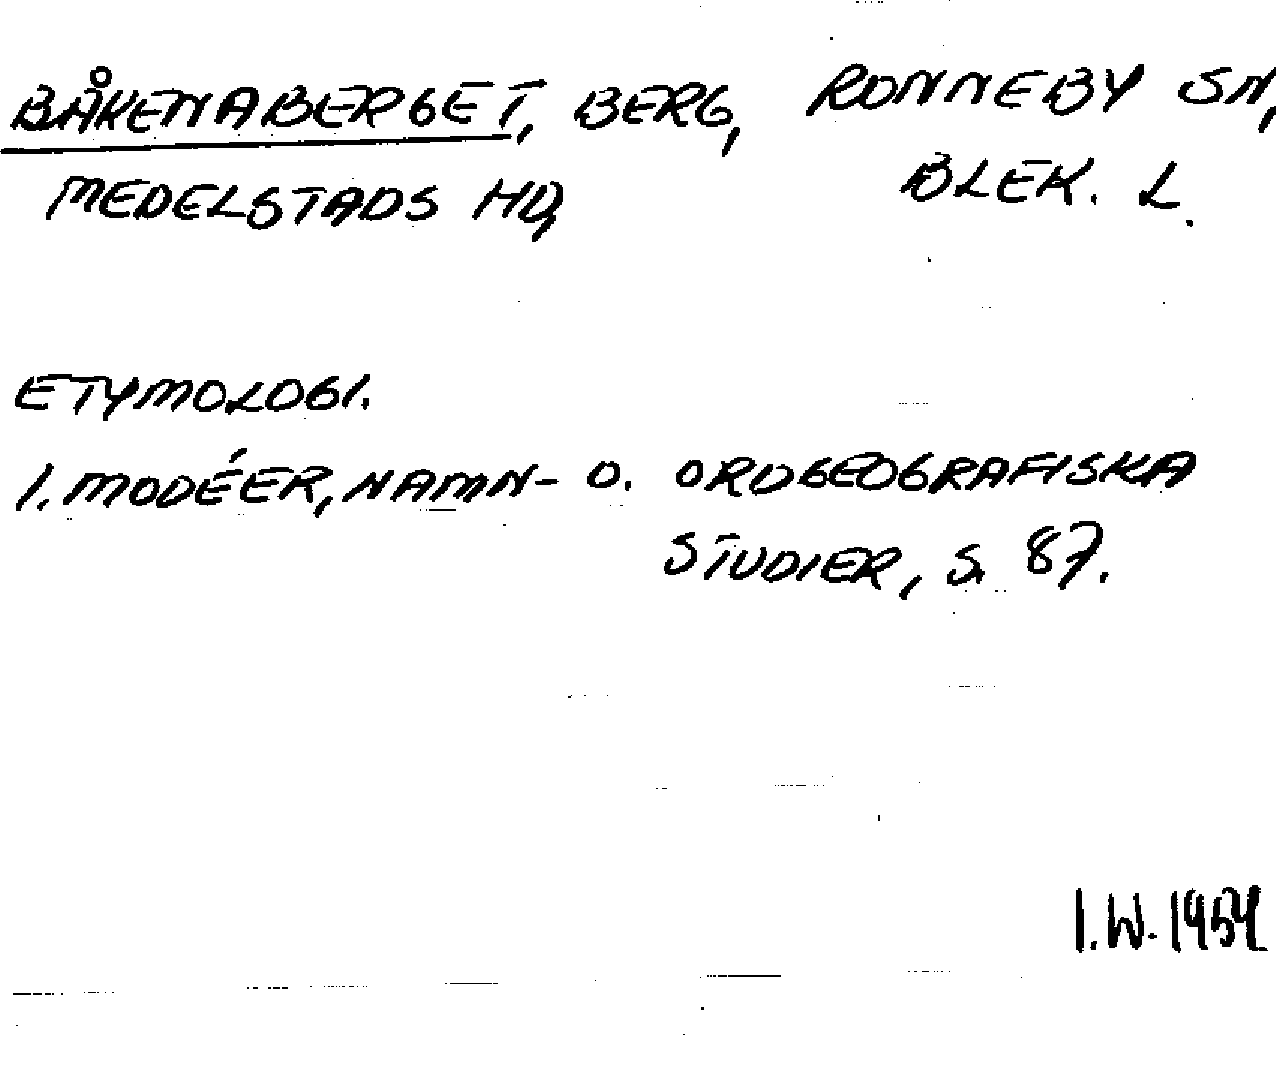 BÅKENABERGET, BERG, RONNEBY SN,
MEDELSTADS HD, BLEK. L.
ETYMOLOGI.
I. MODÉER, NAMN- O. ORDGEOGRAFISKA
STUDIER, S. 87.
I.W. 1954